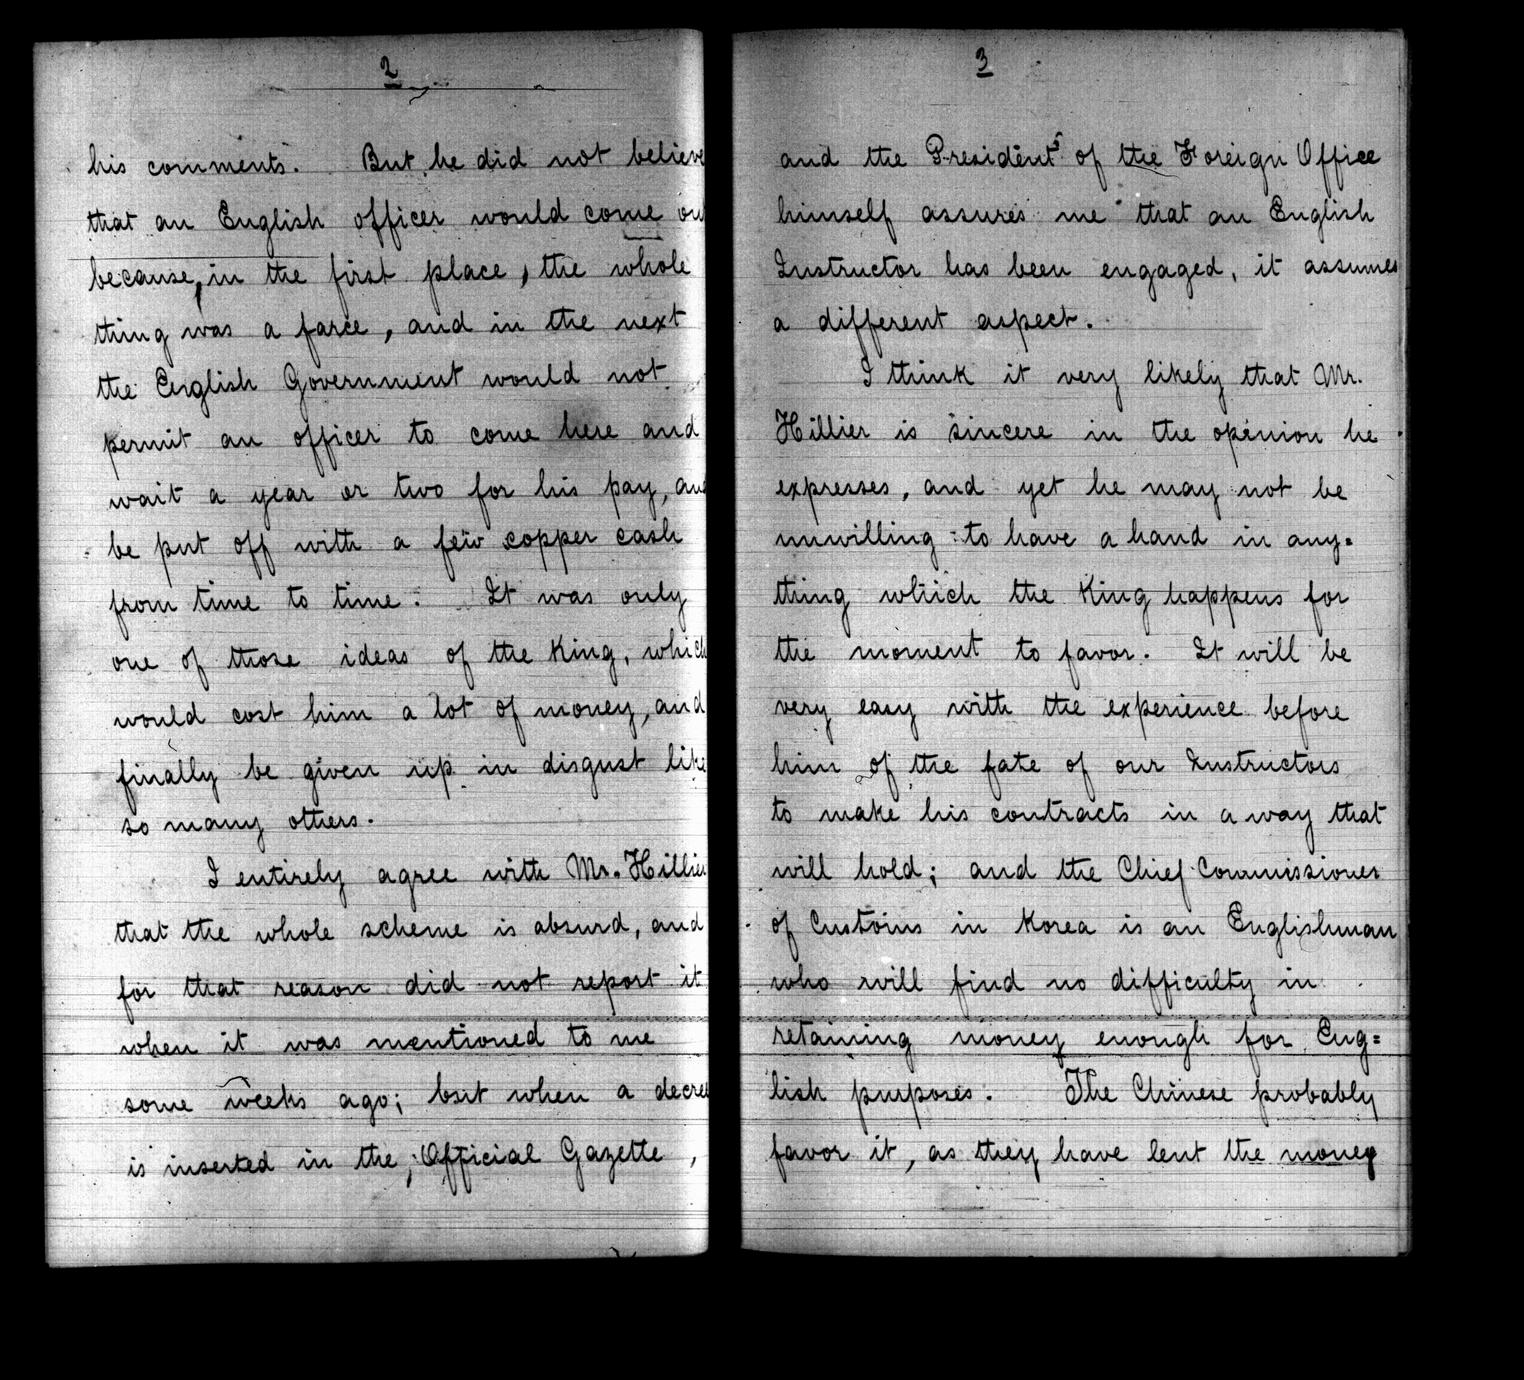 2
his comments. But he did not believe
that an English officer would come out
because, in the first place, the whole
thing was a farce, and in the next
the English Government would not
permit an officer to come here and
wait a year or two for his pay, and
be put off with a few copper cash
from time to time. It was only
one of those ideas of the King, which
would cost him a lot of money, and
finally be given up in disgust like
so many others.
I entirely agree with Mr. Hillier
that the whole scheme is absurd, and
for that reason did not report it
when it was mentioned to me
some weeks ago; but when a decree
is inserted in the Official Gazette,
3
and the President of the Foreign Office
himself assures me that an English
Instructor has been engaged, it assumes
a different aspect.
I think it very likely that Mr.
Hillier is sincere in the opinion he
expresses, and yet he may not be
unwilling to have a hand in any=
thing which the King happens for
the moment to favor. It will be
very easy with the experience before
him of the fate of our Instructors
to make his contracts in a way that
will hold; and the Chief Commissioner
of Customs in Korea is an Englishman
who will find no difficulty in
retaining money enough for Eng=
lish purposes. The Chinese probably
favor it, as they have lent the money